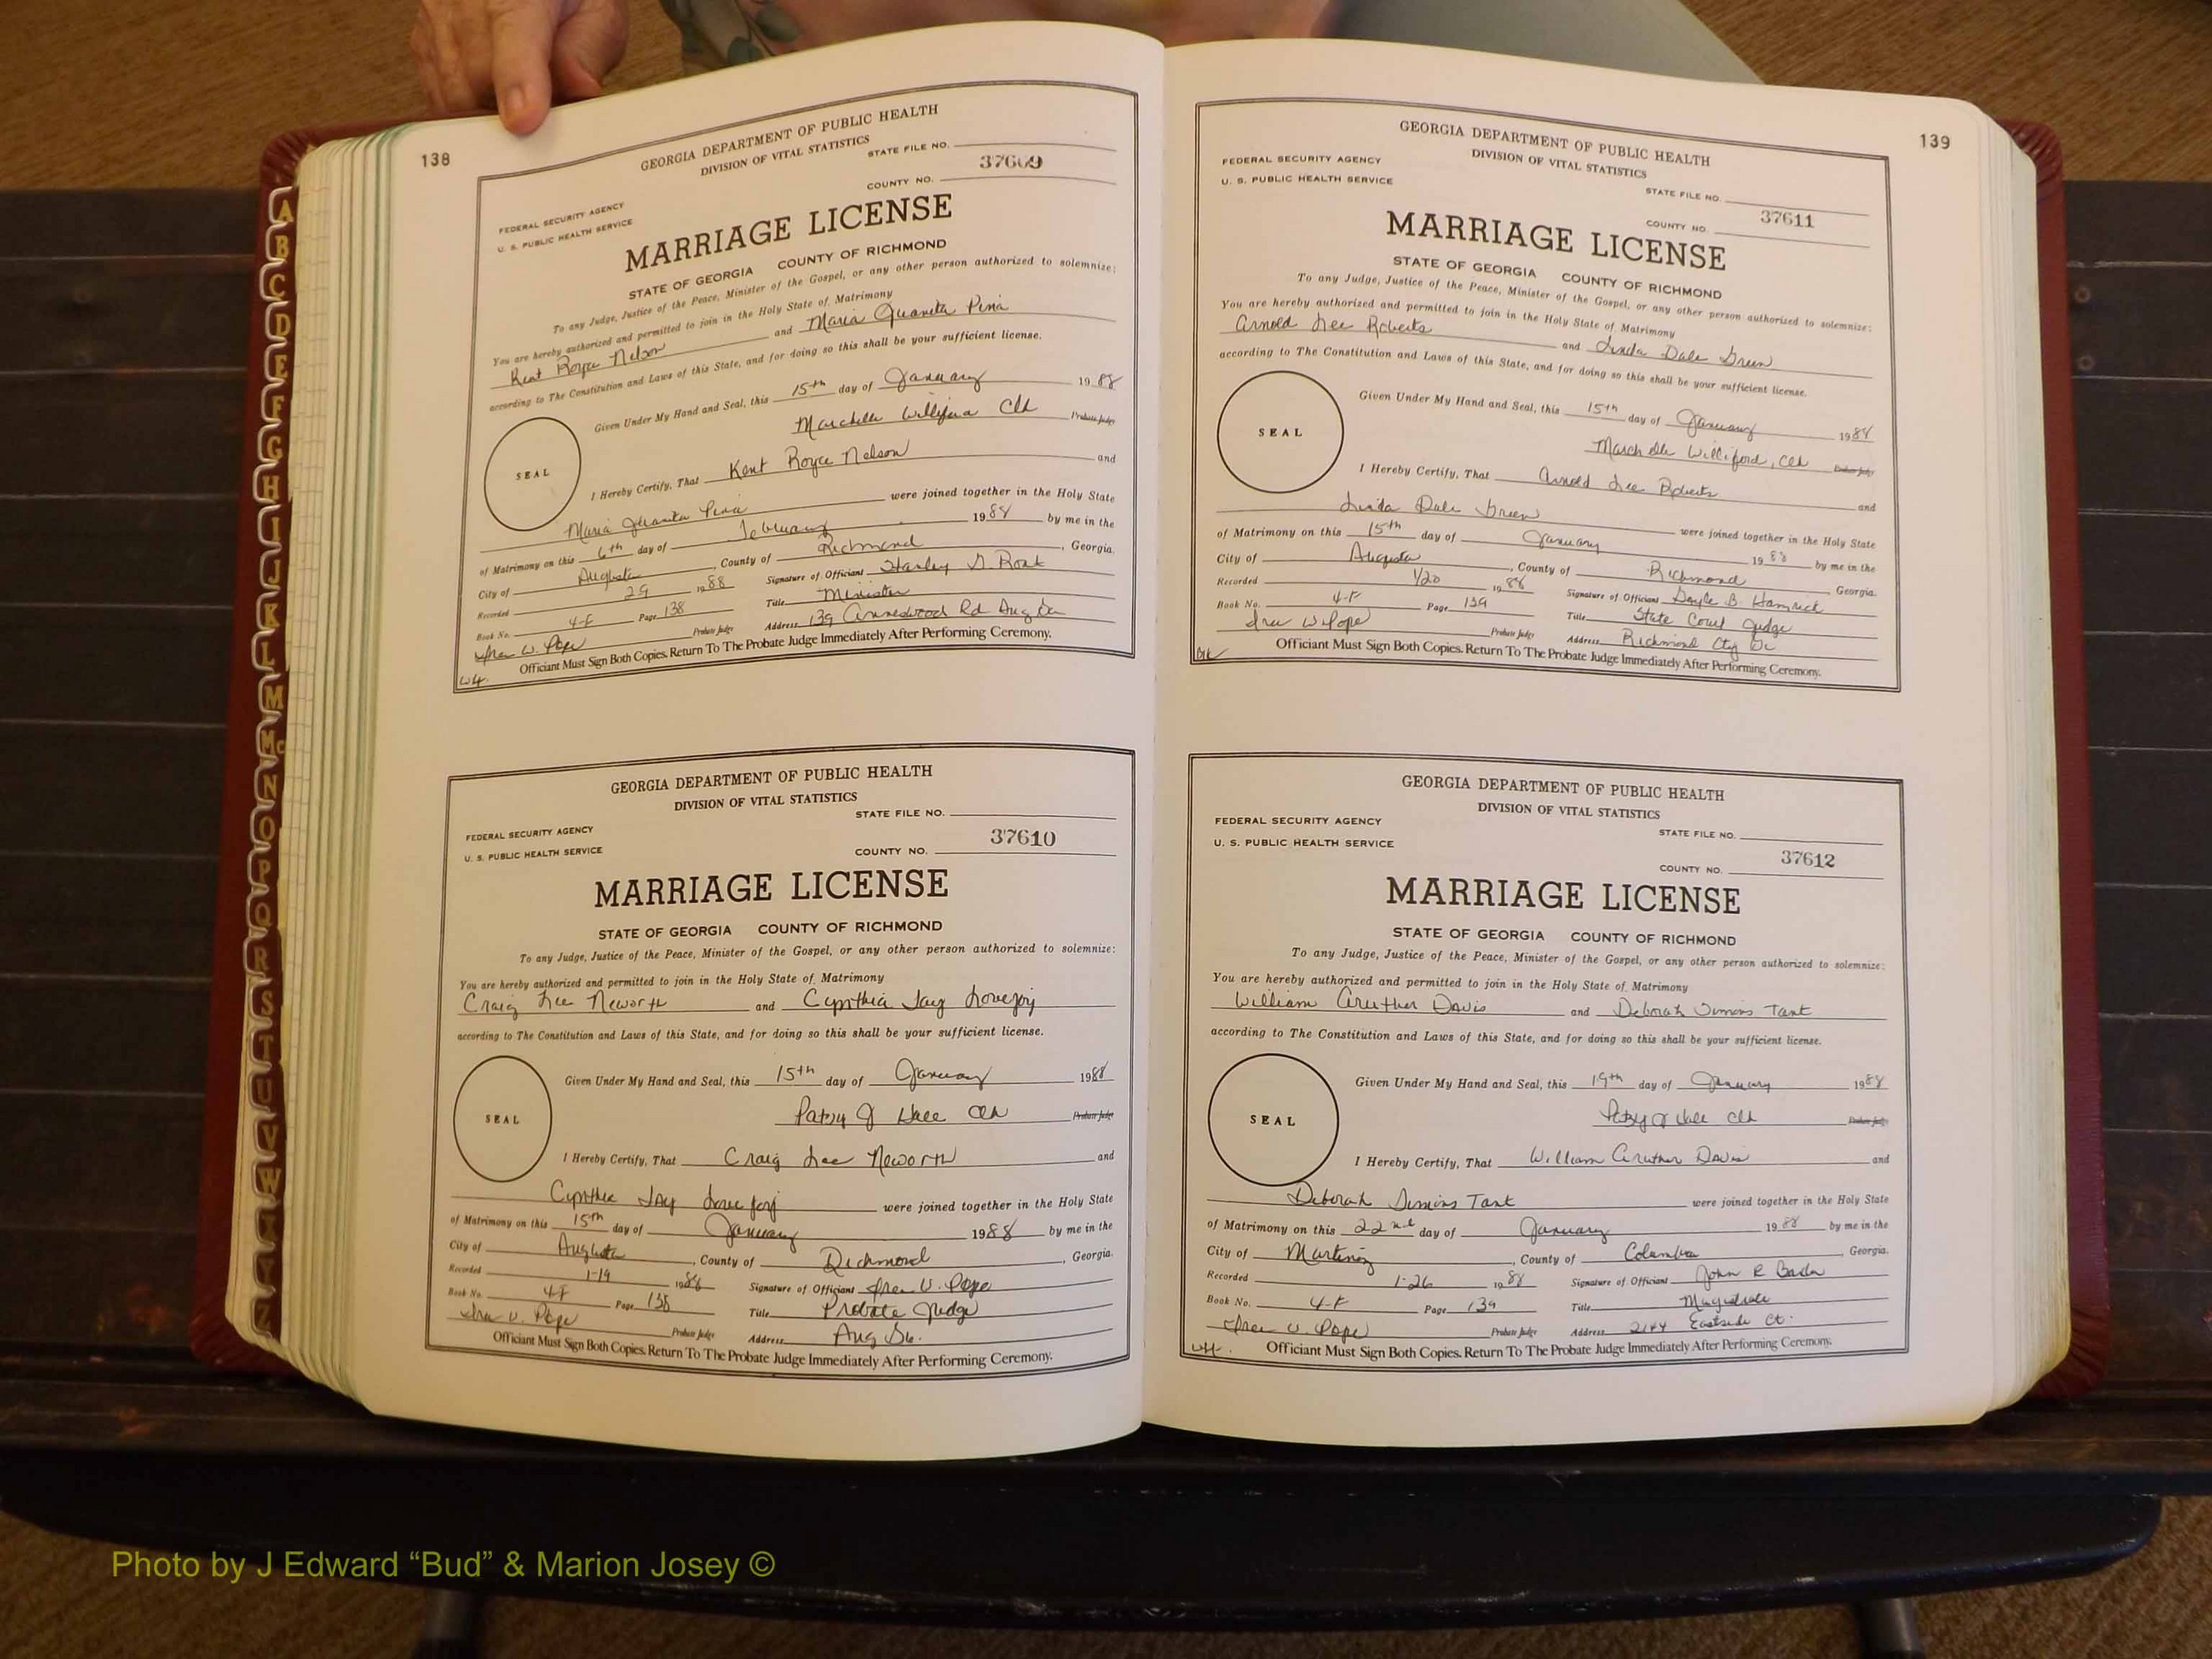 138
GEORGIA DEPARTMENT OF PUBLIC HEALTH
DIVISION OF VITAL STATISTICS
STATE FILE NO.
37609
COUNTY NO.
FEDERAL SECURITY AGENCY
U. S. PUBLIC HEALTH SERVICE
MARRIAGE LICENSE
STATE OF GEORGIA COUNTY OF RICHMOND
To any Judge, Justice of the Peace, Minister of the Gospel, or any other person authorized to solemnize:
You are hereby authorized and permitted to join in the Holy State of Matrimony
Kent Royce Nelson and Maria Juanita Pina
according to The Constitution and Laws of this State, and for doing so this shall be your sufficient license.
Given Under My Hand and Seal, this 15th day of January 1988
Marchelle Williford Clk Probate Judge
SEAL
I Hereby Certify, That Kent Royce Nelson and
Maria Juanita Pina were joined together in the Holy State
of Matrimony on this 6th day of February 1988 by me in the
City of Augusta, County of Richmond, Georgia.
Recorded 29 1988 Signature of Official Stanley
Book No. 4-F Page 138 Title Minister
Probate Judge Address 139 Rd Aug Ga
Officiant Must Sign Both Copies. Return To The Probate Judge Immediately After Performing Ceremony.
GEORGIA DEPARTMENT OF PUBLIC HEALTH
DIVISION OF VITAL STATISTICS
STATE FILE NO.
FEDERAL SECURITY AGENCY
37610
U. S. PUBLIC HEALTH SERVICE
COUNTY NO.
MARRIAGE LICENSE
STATE OF GEORGIA COUNTY OF RICHMOND
To any Judge, Justice of the Peace, Minister of the Gospel, or any other person authorized to solemnize:
You are hereby authorized and permitted to join in the Holy State of Matrimony
Craig Lee Neworth and Cynthia Jay Lovejoy
according to The Constitution and Laws of this State, and for doing so this shall be your sufficient license.
Given Under My Hand and Seal, this 15th day of January 1988
Patsy J Hall Clk Probate Judge
SEAL
I Hereby Certify, That Craig Lee Neworth and
Cynthia Jay Lovejoy were joined together in the Holy State
of Matrimony on this 15th day of January 1988 by me in the
City of Augusta, County of Richmond, Georgia.
Recorded 1-19 1988 Signature of Official Pope
Book No. 4-F Page 138 Title Probate Judge
Pope Probate Judge Address Aug Ga.
Officiant Must Sign Both Copies. Return To The Probate Judge Immediately After Performing Ceremony.
139
GEORGIA DEPARTMENT OF PUBLIC HEALTH
DIVISION OF VITAL STATISTICS
FEDERAL SECURITY AGENCY
U. S. PUBLIC HEALTH SERVICE
STATE FILE NO.
37611
COUNTY NO.
MARRIAGE LICENSE
STATE OF GEORGIA COUNTY OF RICHMOND
To any Judge, Justice of the Peace, Minister of the Gospel, or any other person authorized to solemnize:
You are hereby authorized and permitted to join in the Holy State of Matrimony
Arnold Lee Roberts and Linda Dale Green
according to The Constitution and Laws of this State, and for doing so this shall be your sufficient license.
Given Under My Hand and Seal, this 15th day of January 1988
Marchelle Williford, Clk Probate Judge
SEAL
I Hereby Certify, That Arnold Lee Roberts and
Linda Dale Green were joined together in the Holy State
of Matrimony on this 15th day of January 1988 by me in the
City of Augusta, County of Richmond Georgia.
Recorded 1/20 1988 Signature of Official Gayle B. Hamrick
Book No. 4-F Page 139 Title State Court Judge
Pope Probate Judge Address Richmond Cty Ga
Officiant Must Sign Both Copies. Return To The Probate Judge Immediately After Performing Ceremony.
GEORGIA DEPARTMENT OF PUBLIC HEALTH
DIVISION OF VITAL STATISTICS
FEDERAL SECURITY AGENCY
STATE FILE NO.
U. S. PUBLIC HEALTH SERVICE
37612
COUNTY NO.
MARRIAGE LICENSE
STATE OF GEORGIA COUNTY OF RICHMOND
To any Judge, Justice of the Peace, Minister of the Gospel, or any other person authorized to solemnize:
You are hereby authorized and permitted to join in the Holy State of Matrimony
William Davis and Deborah Simons Tant
according to The Constitution and Laws of this State, and for doing so this shall be your sufficient license.
Given Under My Hand and Seal, this 19th day of January 1988
Patsy J Hall Clk Probate Judge
SEAL
I Hereby Certify, That William Davis and
Deborah Simons Tant were joined together in the Holy State
of Matrimony on this 22nd day of January 1988 by me in the
City of Martinez, County of Columbia, Georgia.
Recorded 1-26 1988 Signature of Official John R
Book No. 4-F Page 139 Title Magistrate
Pope Probate Judge Address 2144 Eastside Ct.
Officiant Must Sign Both Copies. Return To The Probate Judge Immediately After Performing Ceremony.
A
B
C
D
E
F
G
H
I
J
K
L
M
Mc
N
O
P
Q
R
S
T
U
V
W
X
Y
Z
Photo by J Edward “Bud” & Marion Josey ©